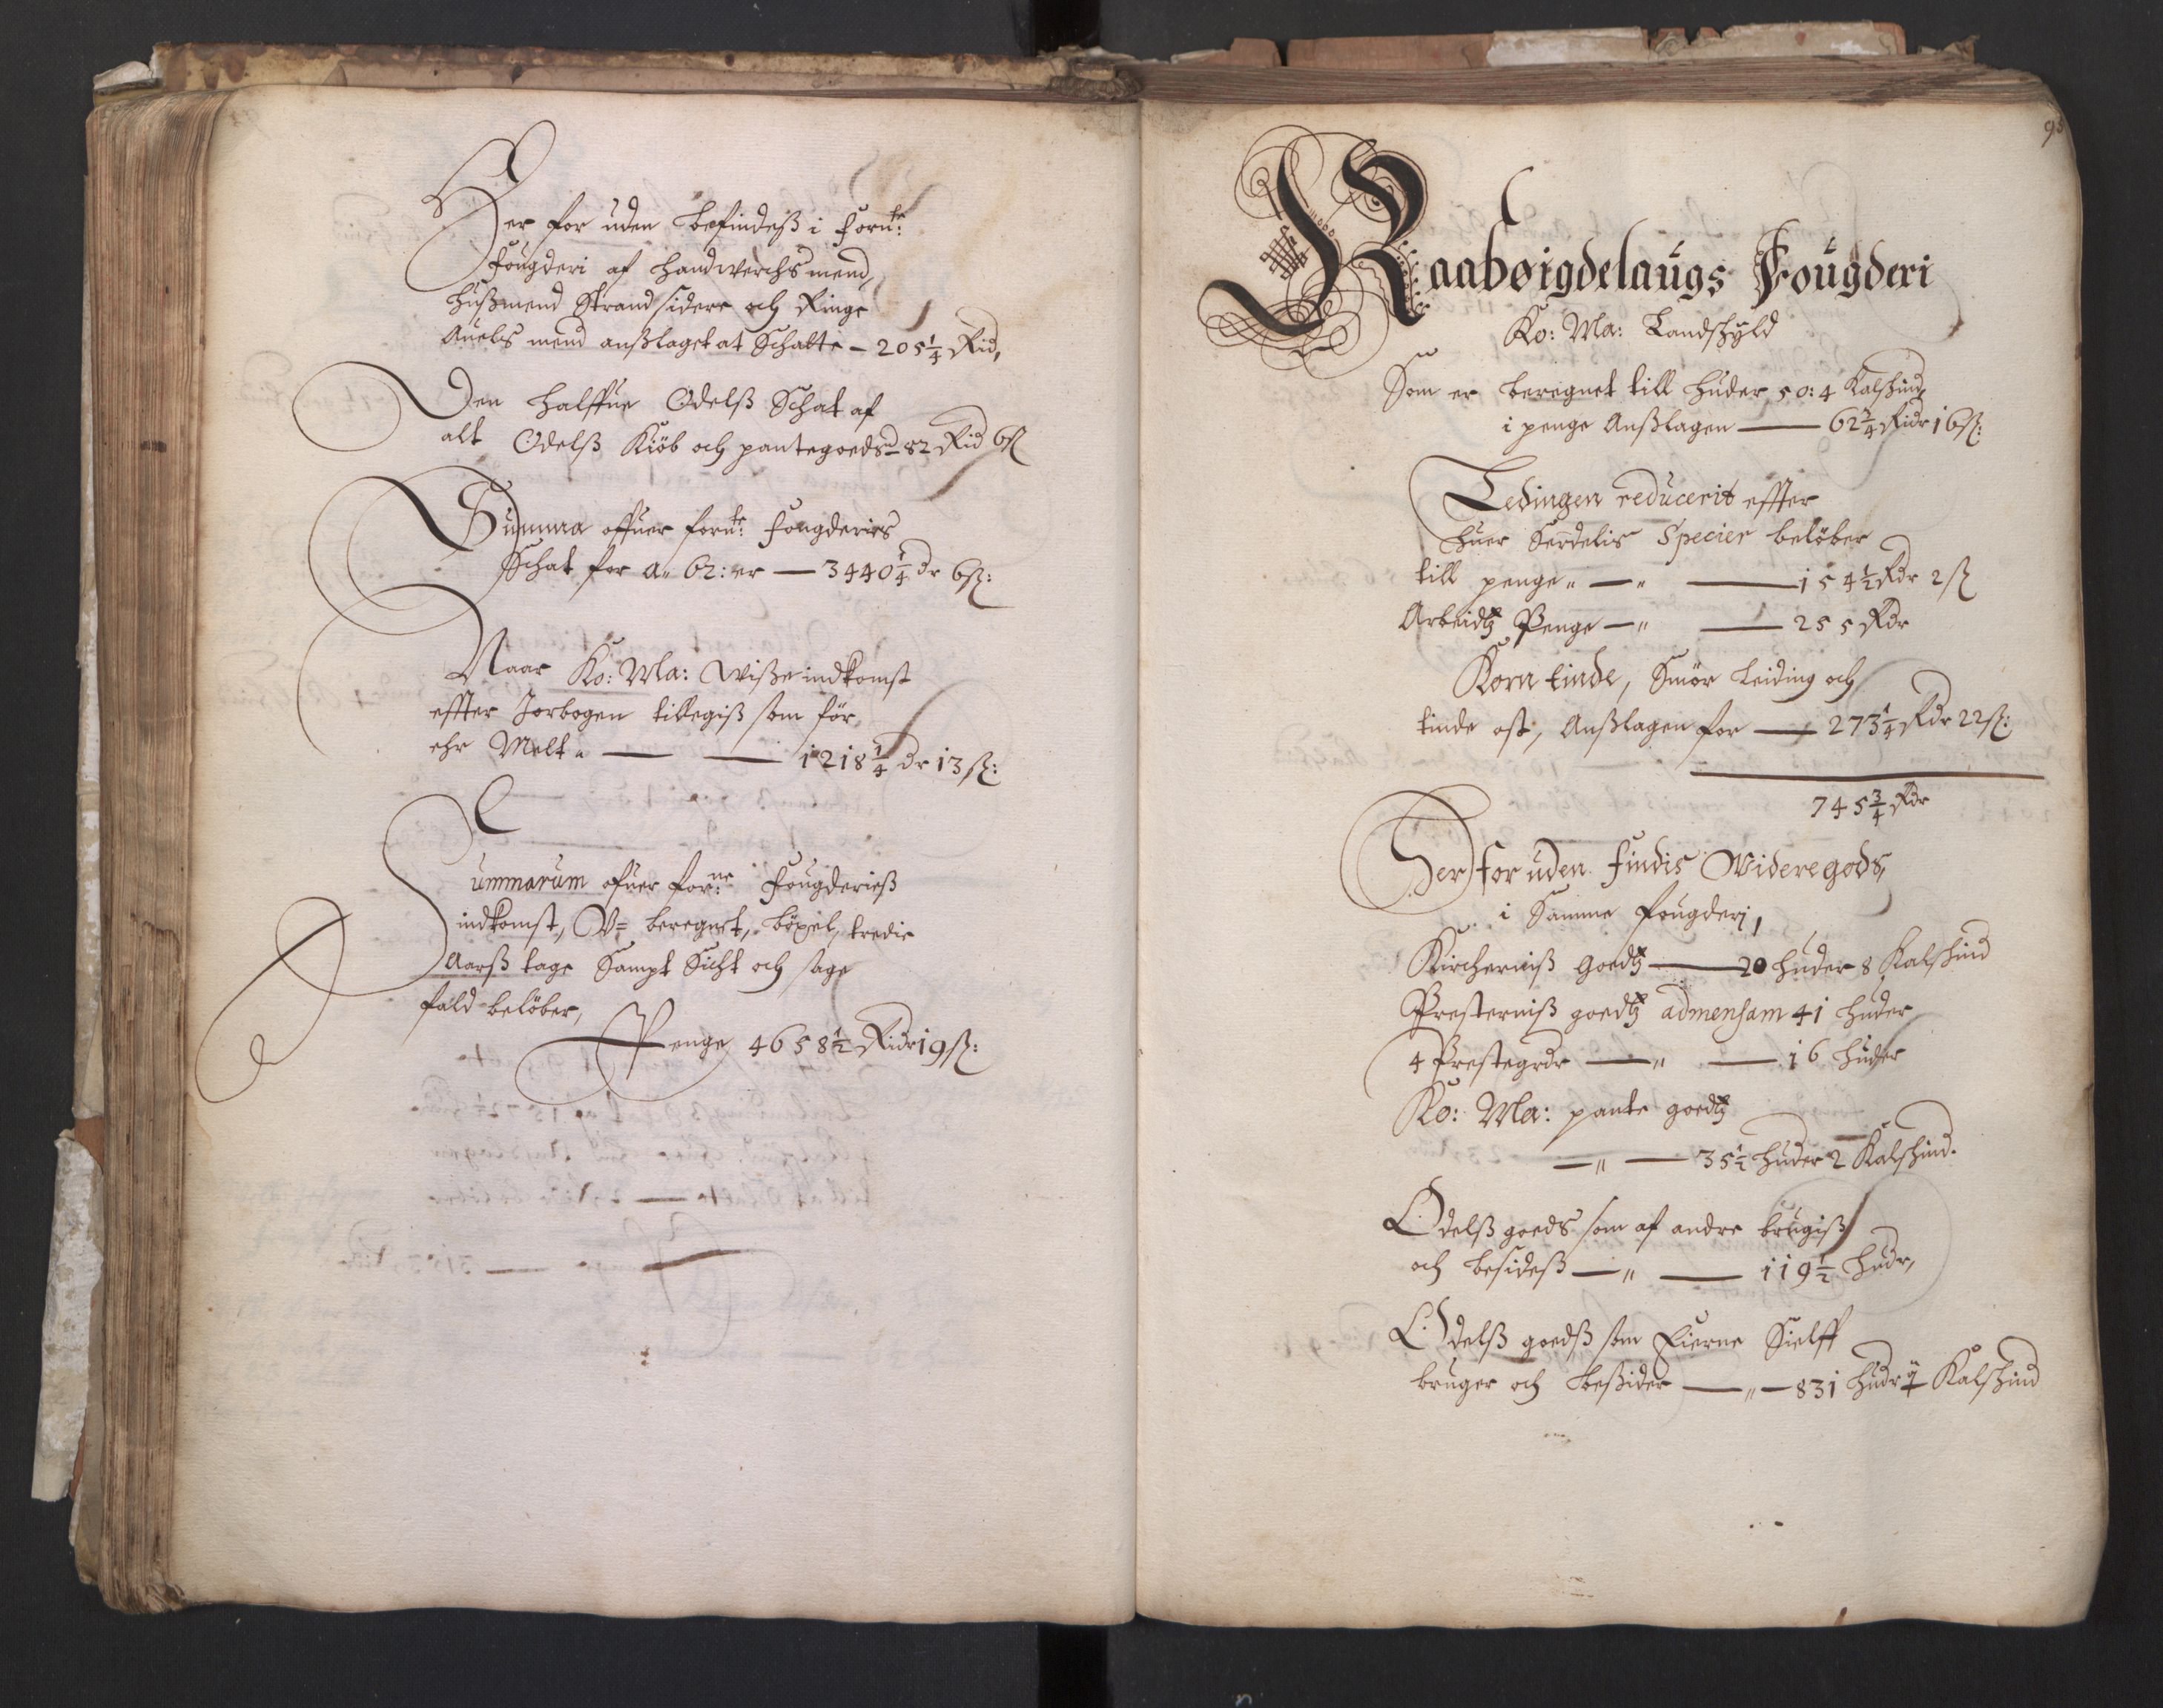 Her for uden befindeß i Fornte:
Fougderi af handwerchs mend,
hußmend Strandsidere och Ringe
Auels mend anßlaget at Schatte – 205¼ Rid,
Den halffue Odelß Schat af
alt Odelß Kiöb och pantegoeds – 82 Rid 6ß
Summa offuer fornte: Fougderies
Schat for a. 62: er — 3440¼ dr 6ß:
Naar Ko: Ma: Wiße indkomst
effter Jorbogen tillegiß som för
ehr Melt „ — — 1218¼ dr 13ß:
Summarum ofuer forne: Fougderieß
indkomst, V= beregnet, böxel, tredie
Aarß tage Sampt Sicht och sage
fald belöber,
Penge 4658½ Ridr 19ß:
93
Raabøigdelaugs Fougderi
Ko: Ma: Landschyld
Som er beregnet till huder 50: 4 Kalfskind,
i penge Anßlagen — 62¾ Ridr 16ß:
Ledingen reducerit effter
huer Serdelis Specier belöber
till penge „ — „ — 154½ Rdr 2ß
Arbeidtz Penge — „ — 255 Rdr
Korn tinde, Smör Leiding och
tinde ost, Anßlagen for — 273¼ Rdr 22ß:
745¾ Rdr
Her for uden findis Videre gods,
i Samme fougderj,
Kircherniß Goedtz — 20 huder 8 Kalfskind
Presterniß goedtz admensam 41 huder
4 Prestegrdr — „ — 16 huder
Ko: Ma: pante goedtz
— „ — 35½ huder 2 Kalfskind.
Odelß goeds som af andre brugiß
och besideß — „ — 119½ hudr,
Odelß goedß som Eierne Sielff
bruger och beßider — „ — 831 hudr Kalfskind